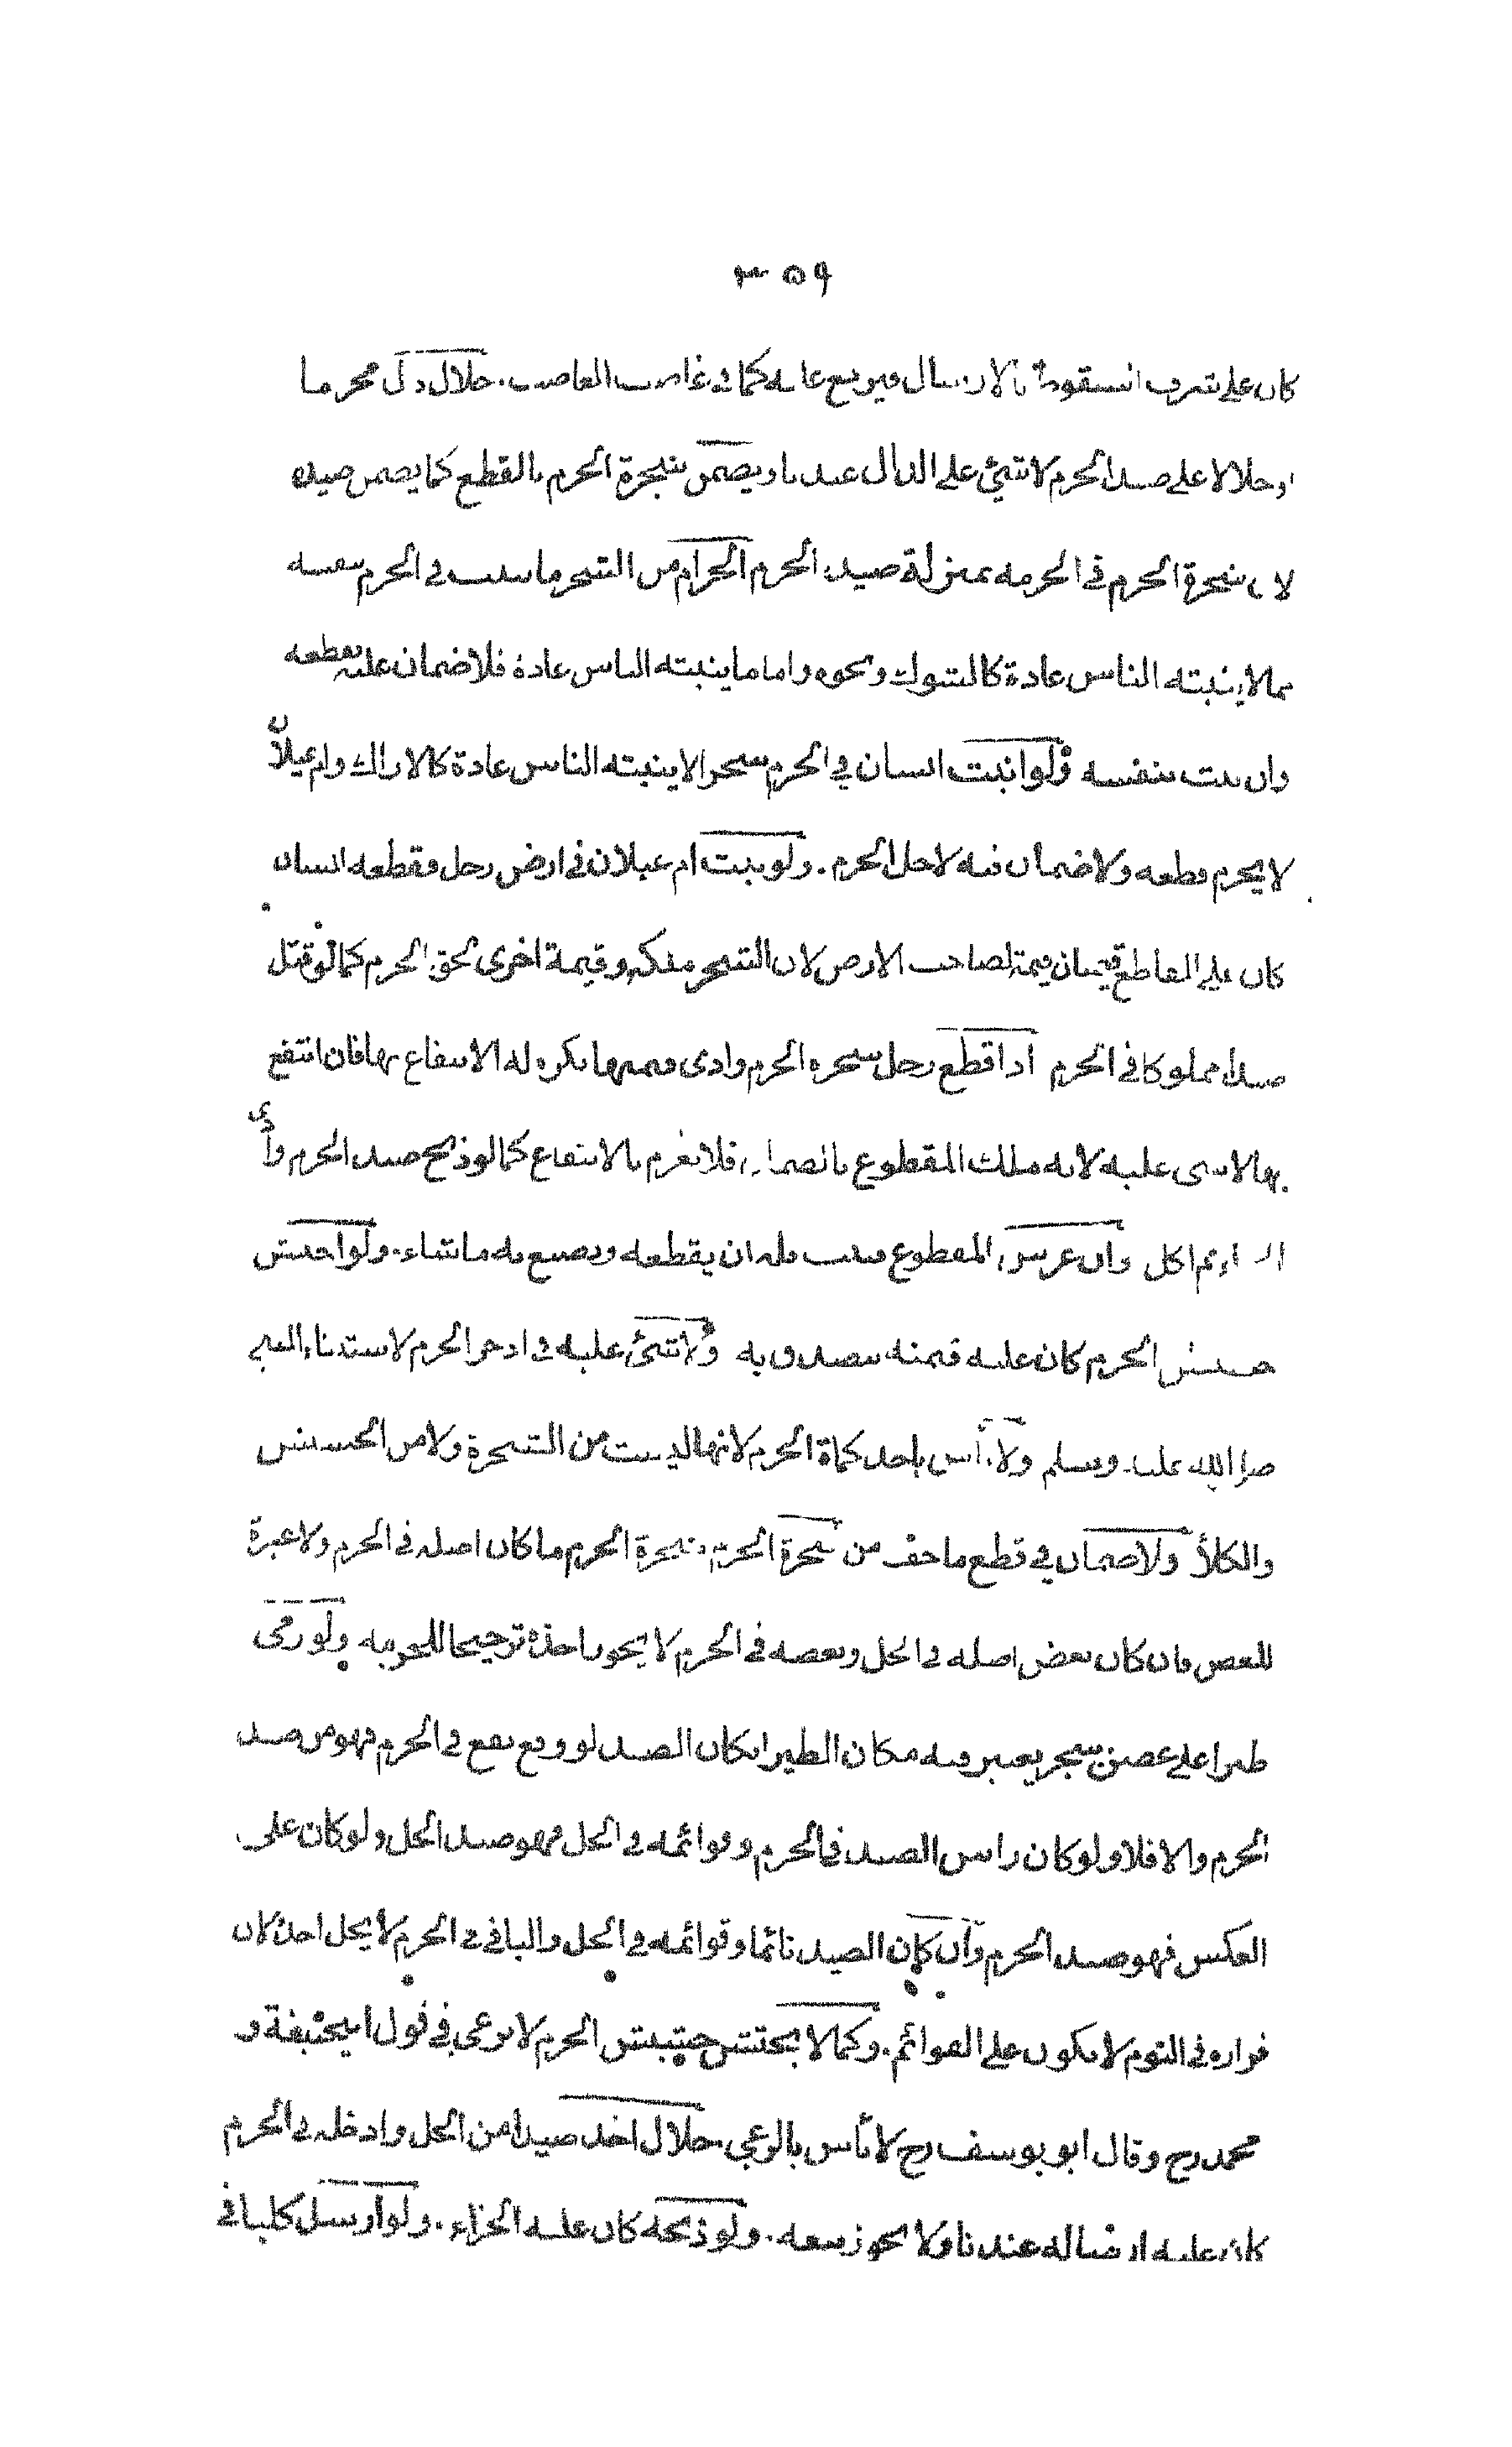 ٣٥٩
كان على شرف السقوط بالارسال فيرجع عليه كما في غاصب الغاصب. حلال دل محرما
او حلالا على صيد الحرم لا شئ على الدال عندنا ويضمن شجرة الحرم بالقطع كما يضمن صيده
لان شجرة الحرم في الحرمه بمنزلة صيد الحرم الحرام من الشجر ما ينبت في الحرم بنفسه
مما لا ينبته الناس عادة كالشوك ونحوه واما ما ينبته الناس عادة فلا ضمان عليه بقطعه
وان نبت بنفسه ولو انبت انسان في الحرم شجرا لا ينبته الناس عادة كالاراك وام غيلان
لا يحرم قطعه ولا ضمان فيه لاجل الحرم. ولو نبت ام غيلان في ارض رجل فقطعه انسان
كان على القاطع قيمتان قيمة لصاحب الارض لان الشجر ملكه وقيمة اخرى لحق الحرم كما لو قتل
صيدا مملوكا في الحرم اذا قطع رجل شجره الحرم وادى قيمتها يكره له الانتفاع بها فان انتفع
بها لا شى عليه لانه ملك المقطوع بالضمان فلا يغرم بالانتفاع كما لو ذبح صيد الحرم وادى
الجزاء ثم اكل وان غرس المقطوع فنبت فله ان يقطعه ويصنع به ما شاء. ولو احتش
حشيش الحرم كان عليه قيمته يتصدق به ولا شئ عليه في اذخر الحرم لاستثناء النبي
صلى الله عليه وسلم ولا بأس باخذ كماة الحرم لانها ليست من الشجرة ولا من الحشيش
والكلأ ولا ضمان في قطع ما جف من شجرة الحرم وشجرة الحرم ما كان اصله في الحرم ولا عبرة
للغصن فان كان بعض اصله في الحل وبعضه في الحرم لا يجوز اخذه ترجيحا للحرمه ولو رمى
طيرا على غصن شجر يعتبر فيه مكان الطير ان كان الصيد لو وقع يقع في الحرم فهو من صيد
الحرم والا فلا ولو كان راس الصيد في الحرم وقوائمه في الحل فهو صيد الحل ولو كان على
العكس فهو صيد الحرم وان كان الصيد نائما وقوائمه في الحل والباقي في الحرم لا يحل اخذه لان
قراره في النوم لا يكون على القوائم. وكما لا يحتش حشيش الحرم لا يرعى في قول ابيحنيفة و
محمد رح وقال ابو يوسف رح لا بأس بالرعي حلال اخذ صيدا من الحل وادخله في الحرم
كان عليه ارساله عندنا ولا يجوز بيعه. ولو ذبحه كان عليه الجزاء. ولو ارسل كلبا في